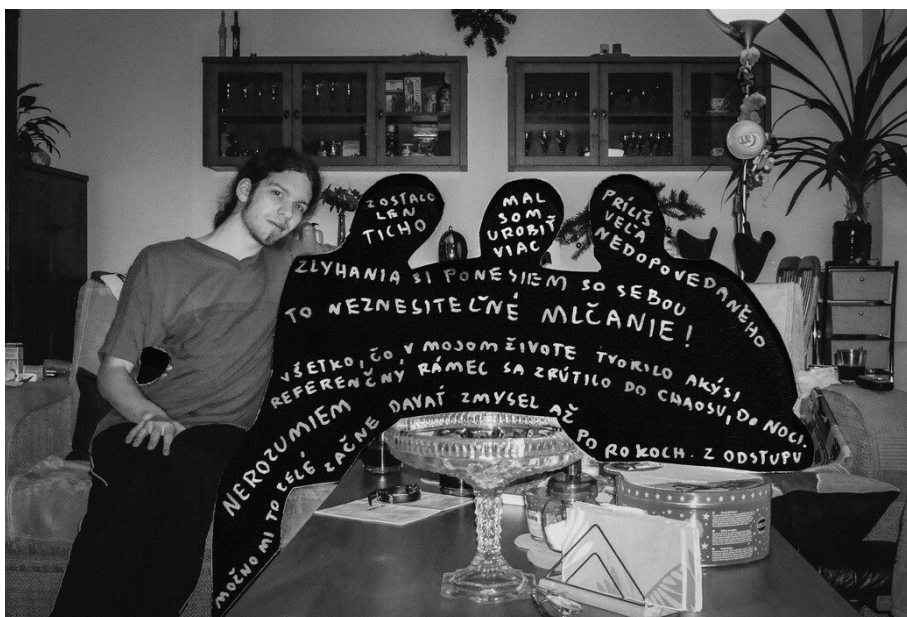 ZOSTALO
LEN
TICHO
MAL
SOM
UROBIŤ
VIAC
PRÍLIŠ
VEĽA
NEDOPOVEDANÉHO
ZLYHANIA SI PONESIEM SO SEBOU
TO NEZNESITEĽNÉ MLČANIE!
VŠETKO, ČO, V MOJOM ŽIVOTE TVORILO AKÝSI
REFERENČNÝ RÁMEC SA ZRÚTILO DO CHAOSU, DO NOCI.
NEROZUMIEM
MOŽNO MI TO CELÉ ZAČNE DAVAŤ ZMYSEL AŽ PO ROKOCH. Z ODSTUPU